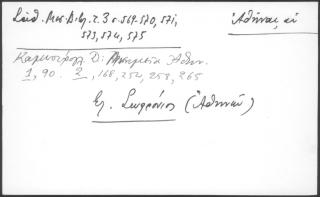 Σάθ. Μεσ. Βιβ. τ. 3 σ. 569-570, 571,
573, 574, 575
Ἀθῆναι, αἱ
Καμπούρογλ. Δ. Μνημεῖα Ἀθην.
1, 90. 2, 168, 252, 258, 265
Ἁγ. Σωφρόνιος (Ἀθηνῶν)